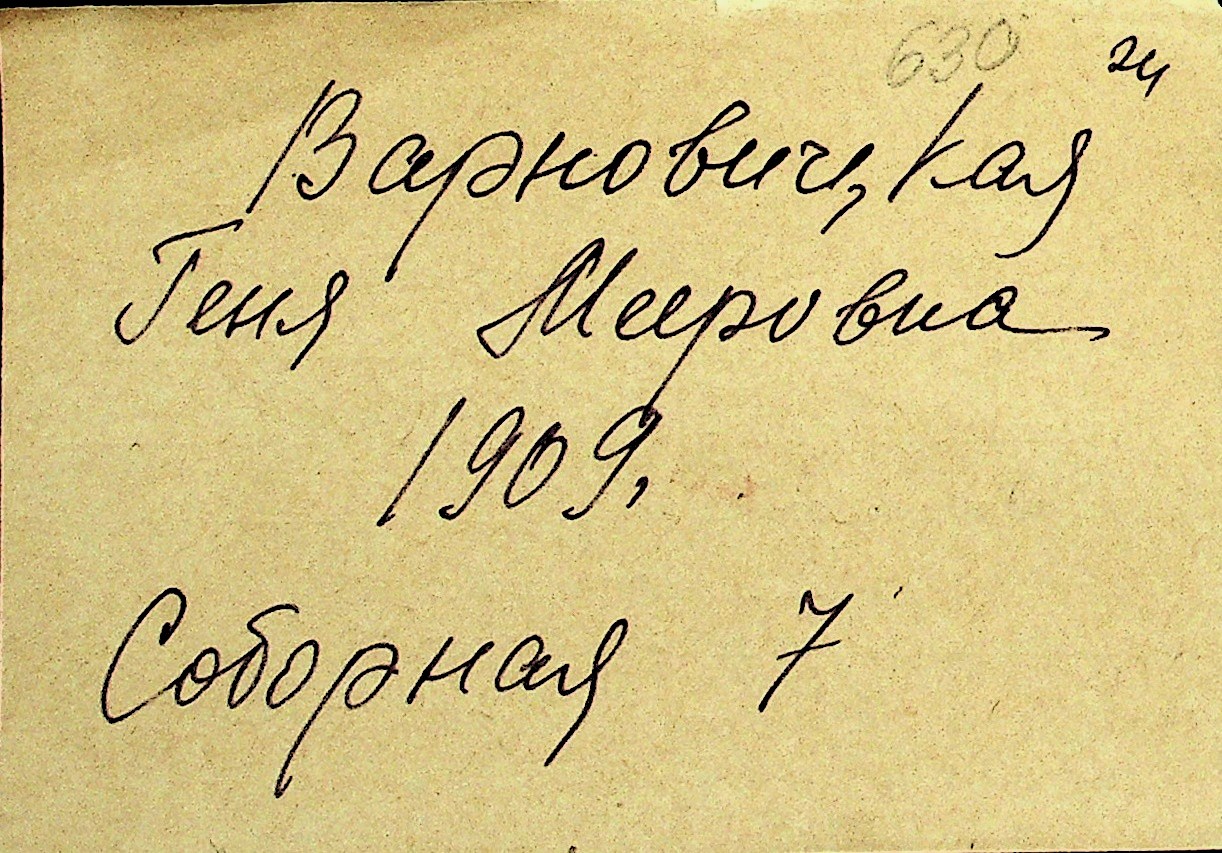 630 24
Варновицкая
Геня Меировна
1909,
Соборная 7